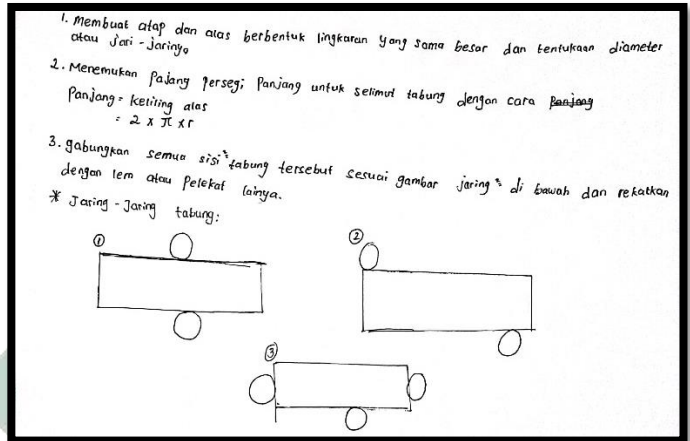 1. Membuat atap dan alas berbentuk lingkaran yang sama besar dan tentukaan diameter
atau jari-jarinya
2. Menemukan Pajang Persegi Panjang untuk selimut tabung dengan cara Panjang
Panjang = keliling alas
= 2 x π x r
3. gabungkan semua sisi² tabung tersebut sesuai gambar jaring² di bawah dan rekatkan
dengan lem atau Pelekat lainya.
* Jaring-Jaring tabung:
①
②
③